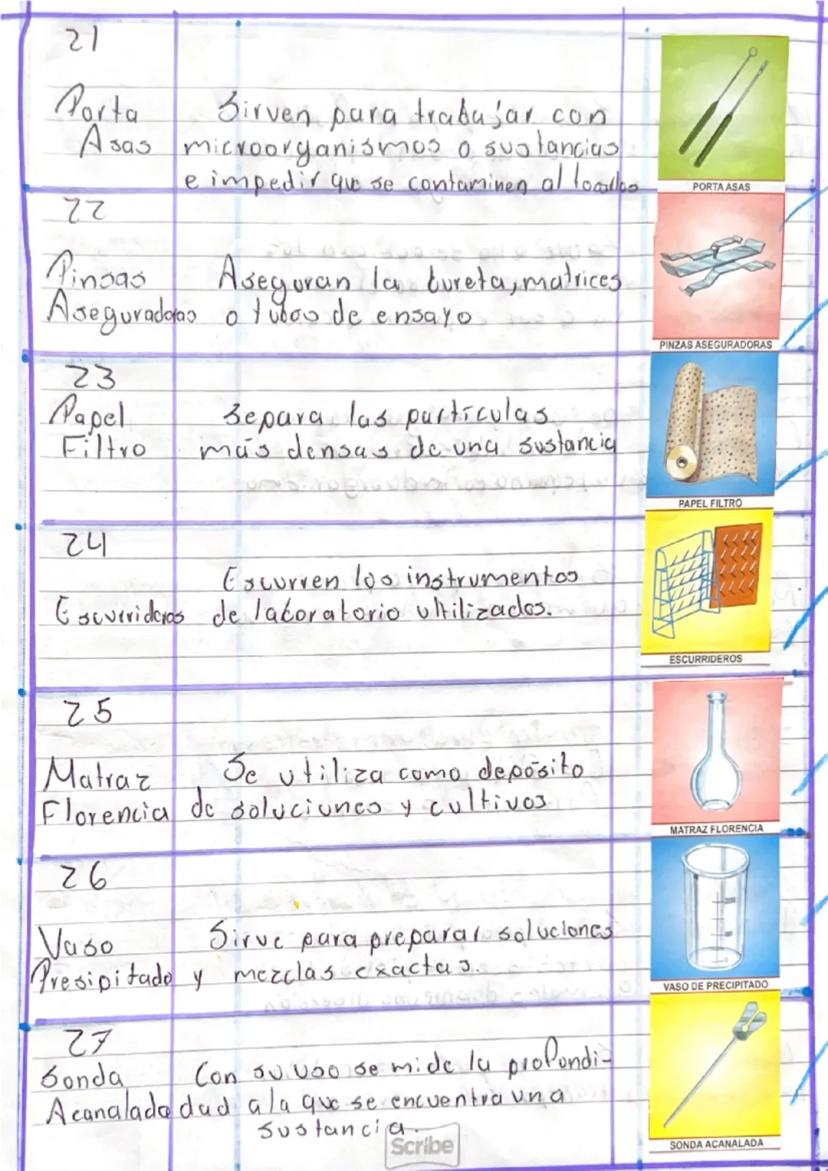 21
Porta Sirven para trabajar con
Asas microorganismos o sustancias
e impedir que se contaminen al
PORTA ASAS
22
Pinsas Aseguran la bureta, matrices
Aseguradoras o tubos de ensayo
PINZAS ASEGURADORAS
23
Papel Separa las partículas
Filtro más densas de una sustancia
PAPEL FILTRO
24
Escurren los instrumentos
Escurrideros de laboratorio ultilizados.
ESCURRIDEROS
25
Matraz Se utiliza como depósito
Florencia de soluciones y cultivos
MATRAZ FLORENCIA
26
Vaso Sirve para preparar soluciones
Presipitado y mezclas exactas.
VASO DE PRECIPITADO
27
Sonda Con su uso se mide la profundi-
Acanalada dad a la que se encuentra una
sustancia.
Scribe
SONDA ACANALADA